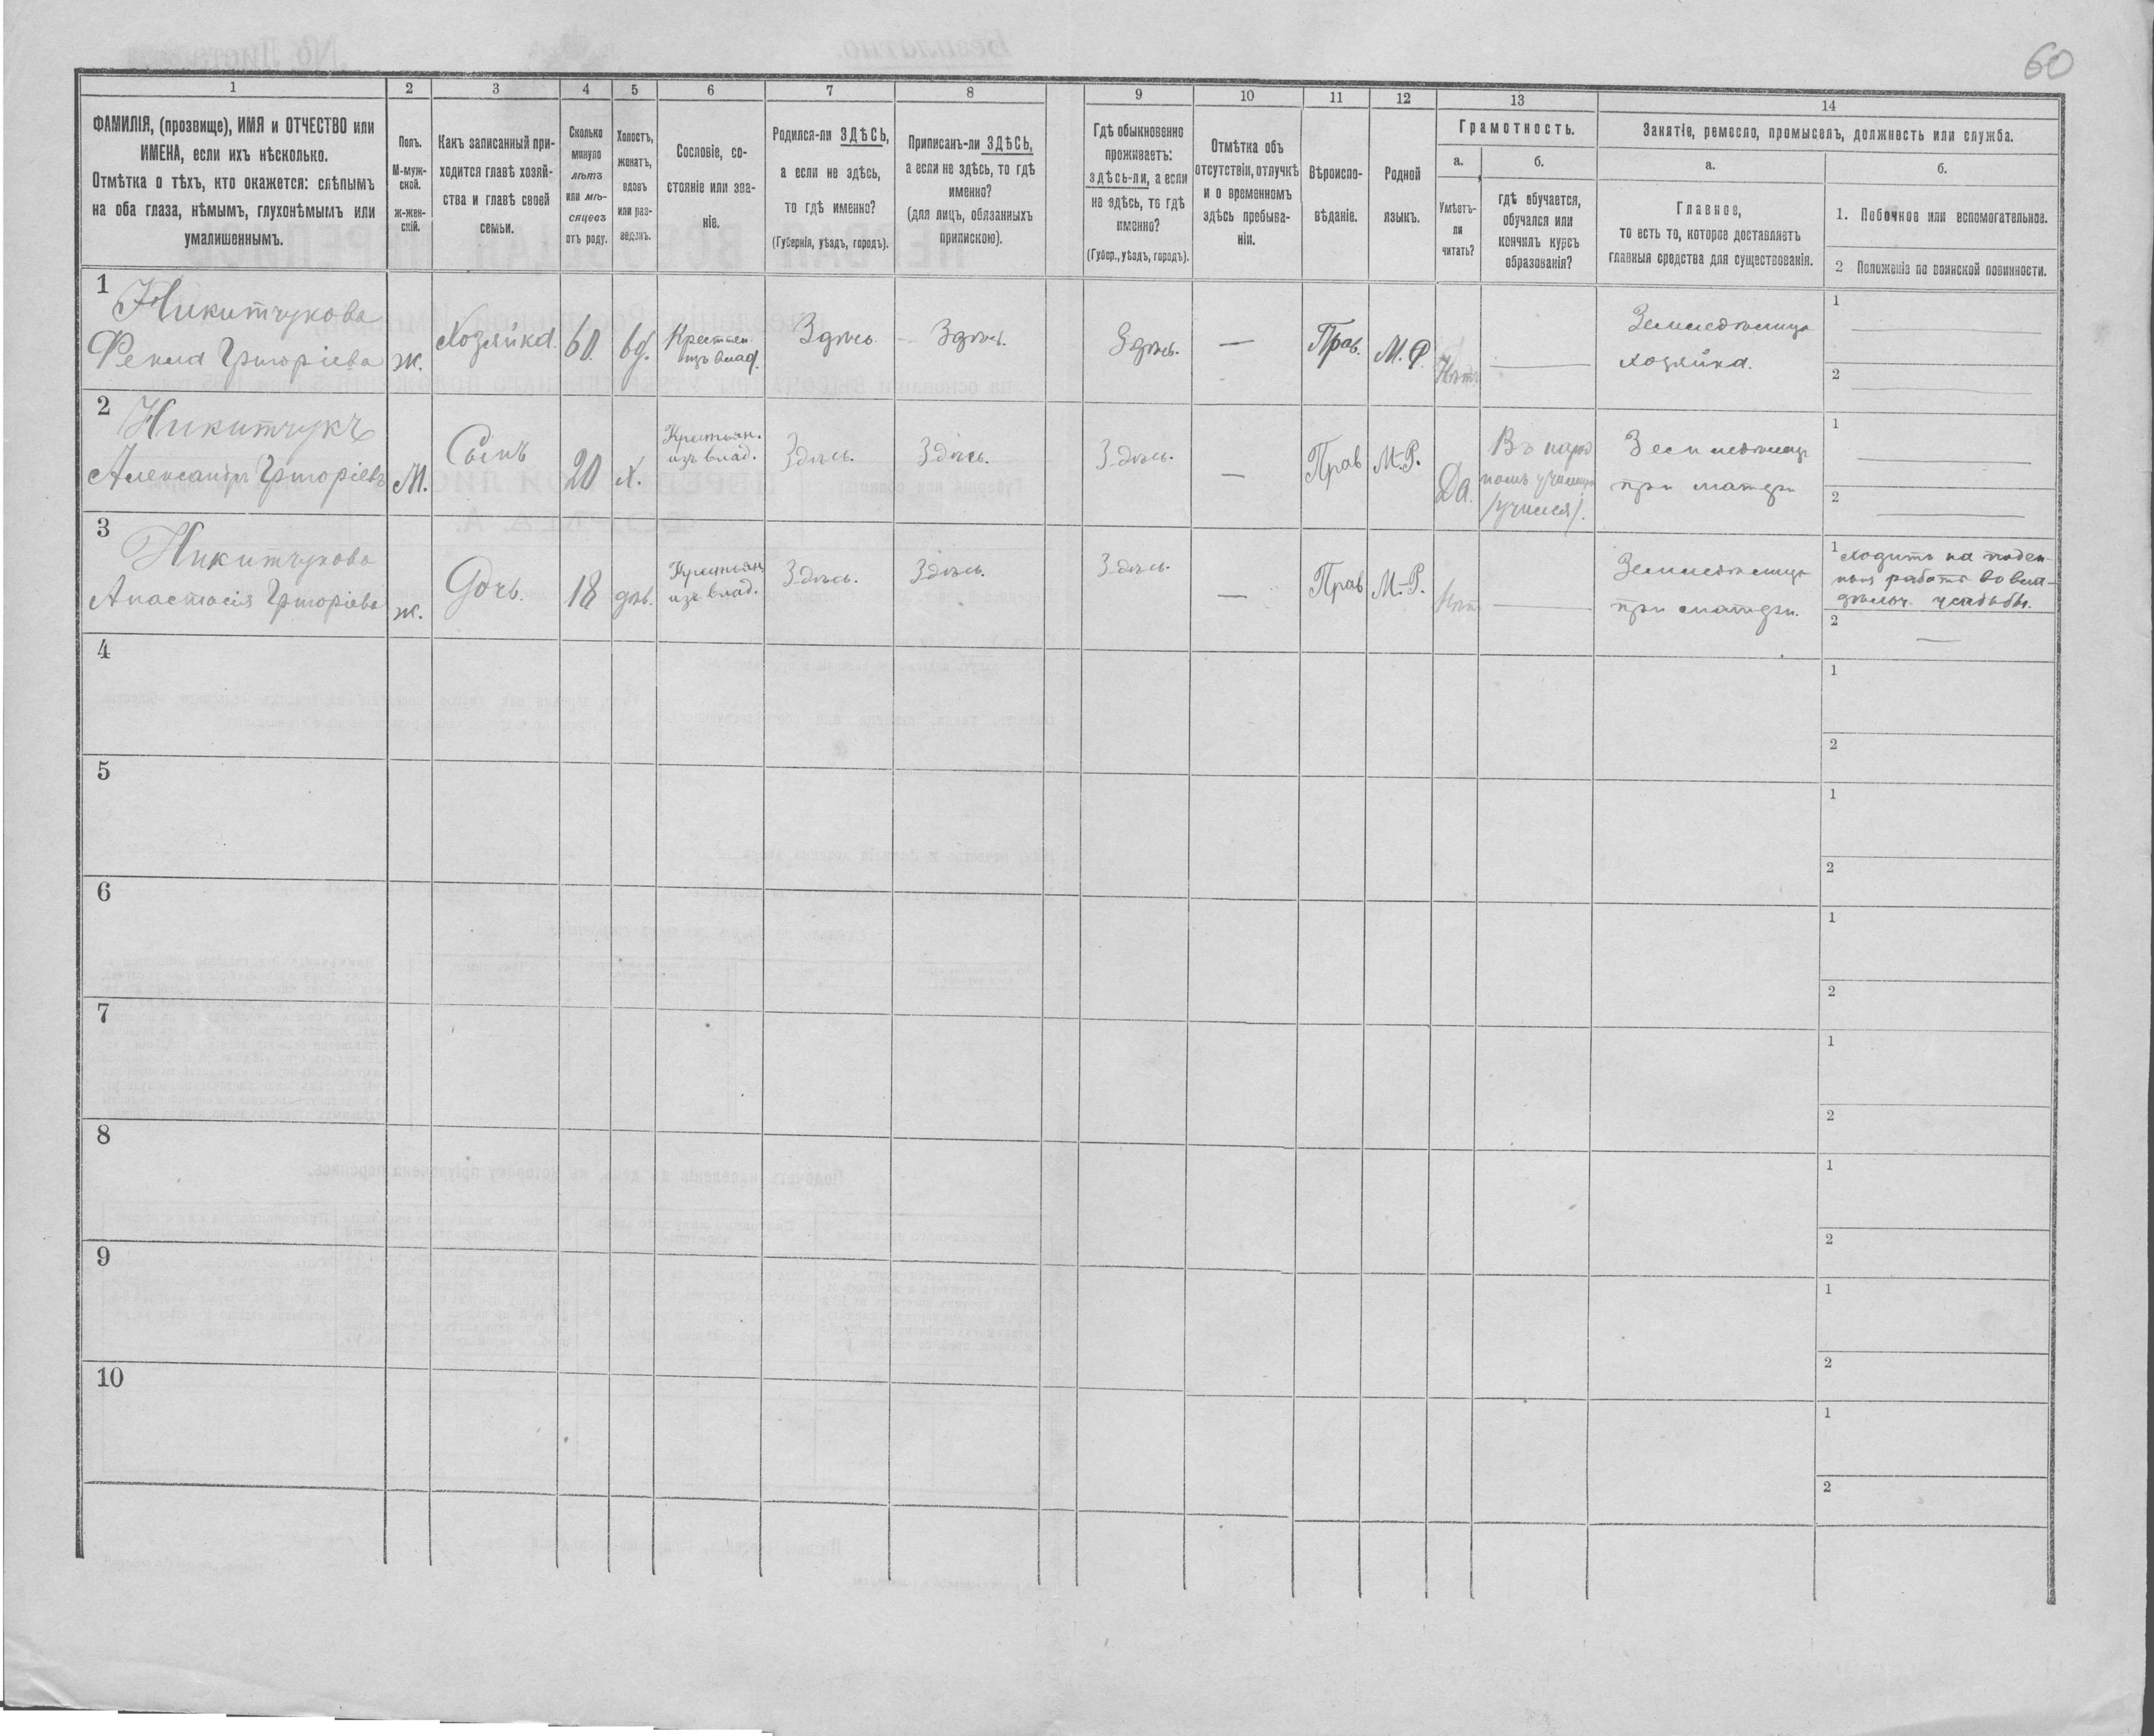 60
1
2
3
4
5
6
7
8
9
10
11
12
13
14
ФАМИЛІЯ, (прозвище), ИМЯ и ОТЧЕСТВО или
ИМЕНА, если ихъ нѣсколько.
Отмѣтка о тѣхъ, кто окажется: слѣпымъ
на оба глаза, нѣмымъ, глухонѣмымъ или
умалишеннымъ.
Полъ.
М-муж-
ской.
ж-жен-
скій.
Какъ записанный при-
ходится главѣ хозяй-
ства и главѣ своей
семьи.
Сколько
минуло
лѣтъ
или мѣ-
сяцевъ
отъ роду.
Холостъ,
женатъ,
вдовъ
или раз-
веденъ.
Сословіе, со-
стояніе или зва-
ніе.
Родился-ли ЗДѢСЬ,
а если не здѣсь,
то гдѣ именно?
(Губернія, уѣздъ, городъ).
Приписанъ-ли ЗДѢСЬ,
а если не здѣсь, то гдѣ
именно?
(для лицъ, обязанныхъ
припискою).
Гдѣ обыкновенно
проживаетъ:
здѣсь-ли, а если
не здѣсь, то гдѣ
именно?
(Губер., уѣздъ, городъ).
Отмѣтка объ
отсутствіи, отлучкѣ
и о временномъ
здѣсь пребыва-
ніи.
Вѣроиспо-
вѣданіе.
Родной
языкъ.
Грамотность.
а.
Умѣетъ-
ли
читать?
б.
гдѣ обучается,
обучался или
кончилъ курсъ
образованія?
Занятіе, ремесло, промыселъ, должность или служба.
а.
Главное,
то есть то, которое доставляетъ
главныя средства для существованія.
б.
1. Побочное или вспомогательное.
2 Положеніе по воинской повинности.
1
Никитчукова
Фекла Григоріева
ж.
Хозяйка
60
вд.
Крестьян.
изъ влад.
Здѣсь
Здѣсь.
Здѣсь.
—
Прав.
М.Р.
Нѣтъ
—
Земледѣлица
хозяйка.
1
2
2
Никитчукъ
Александръ Григоріевъ
М.
Сынъ
20
х.
Крестьян.
изъ влад.
Здѣсь.
Здѣсь.
Здѣсь.
—
Прав
М-Р.
Да.
Въ народ
номъ училищѣ
/учился/.
при матери
1
2
3
Никитчукова
Анастасія Григоріева
ж.
Дочь.
18
дѣв.
Крестьян
изъ влад.
Здѣсь.
Здѣсь.
Здѣсь.
—
Прав
М-Р.
Нѣтъ
—
Земледѣлица
при матери.
1 ходитъ на поден-
ныя работы во вла-
дѣльч. усадьбы.
2
—
4
1
2
5
1
2
6
1
2
7
1
2
8
1
2
9
1
2
10
1
2